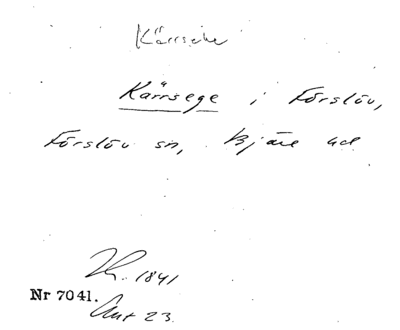 Kärrseke
Kärrsege i Förslöv,
Förslöv sn, Bjäre hd
Lr. 1841
Nr 7041.
Ant 23.